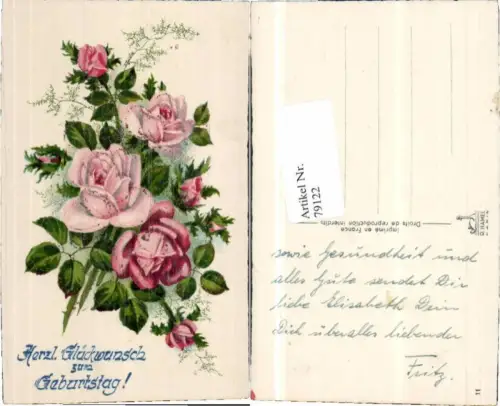 Herzl. Glückwunsch
zum
Geburtstag!
Artikel Nr.
79122
Imprimé en France
Droits de reproduction interdits
sowie Gesundheit und
alles Gute sendet Dir
liebe Elisabeth Dein
Dich überalles liebender
Fritz.
11